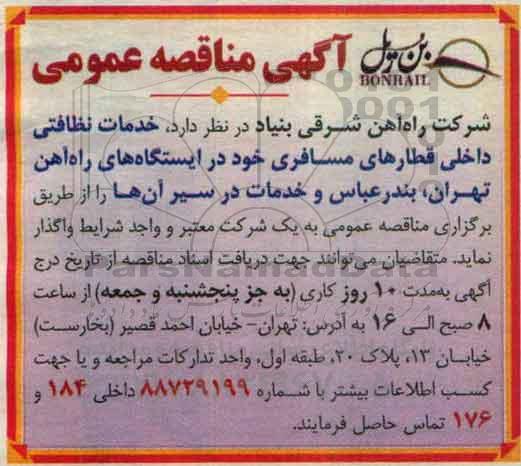 بن ریل
BONRAIL
آگهی مناقصه عمومی
شرکت راه‌آهن شرقی بنیاد در نظر دارد، خدمات نظافتی
داخلی قطارهای مسافری خود در ایستگاه‌های راه‌آهن
تهران، بندرعباس و خدمات در سیر آن‌ها را از طریق
برگزاری مناقصه عمومی به یک شرکت معتبر و واجد شرایط واگذار
نماید. متقاضیان می‌توانند جهت دریافت اسناد مناقصه از تاریخ درج
آگهی به‌مدت ۱۰ روز کاری (به جز پنجشنبه و جمعه) از ساعت
۸ صبح الی ۱۶ به آدرس: تهران- خیابان احمد قصیر (بخارست)
خیابان ۱۳، پلاک ۲۰، طبقه اول، واحد تدارکات مراجعه و یا جهت
کسب اطلاعات بیشتر با شماره ۸۸۷۲۹۱۹۹ داخلی ۱۸۴ و
۱۷۶ تماس حاصل فرمایند.
ParsNamadData